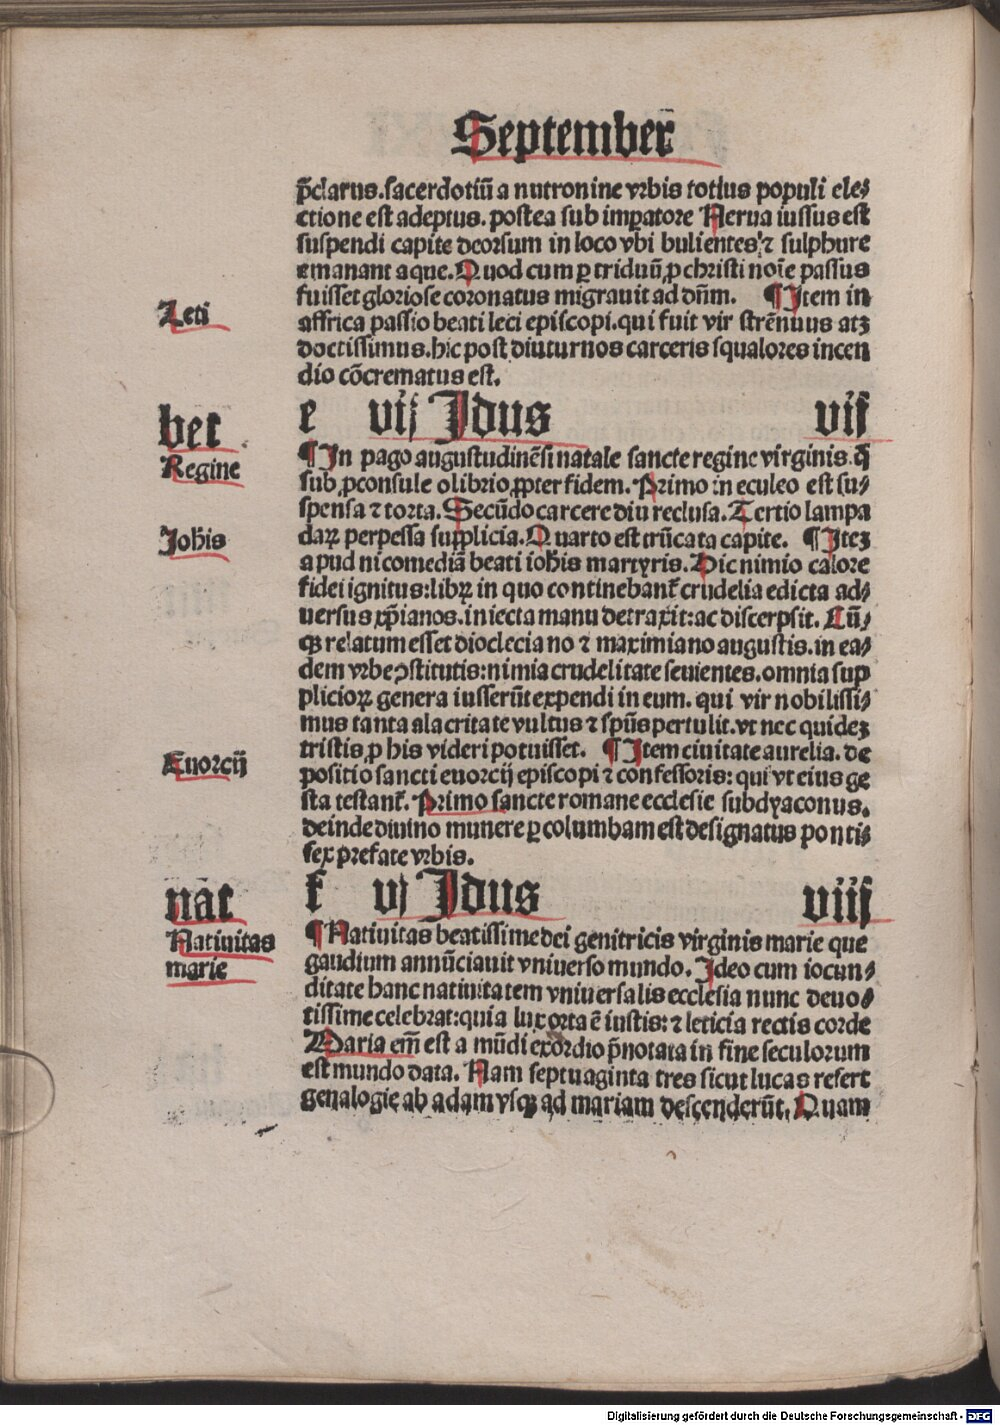 September
p̄clarus.sacerdotiū a nutronine vrbis totius populi ele⸗
ctione est adeptus. postea sub imꝑatore Nerua iussus est
suspendi capite deorsum in loco vbi bulientes ⁊ sulphure
emanant aque. Quod cum ꝑ triduū ꝓ christi noīe passus
fuisset gloriose coronatus migrauit ad dn̄m. ¶ Item in
Leti
affrica passio beati leci episcopi. qui fuit vir strēnuus atꝫ
doctissimus. hic post diuturnos carceris squalores incen
dio cōcrematus est.
ber e vij Idus vij
Regine
¶ In pago augustudinēsi natale sancte regine virginis. q̄
sub ꝓconsule olibrio ꝓpter fidem. Primo in eculeo est su⸗
spensa ⁊ torta. Secūdo carcere diu reclusa. Tertio lampa
Joh̄is
daꝝ perpessa supplicia. Quarto est trūcata capite. ¶ Iteꝫ
apud nicomediā beati ioh̄is martyris. Hic nimio calore
fidei ignitus: libꝝ in quo continebant̄ crudelia edicta ad⸗
uersus xp̄ianos. iniecta manu detraxit: ac discerpsit. Cū⸗
qꝫ relatum esset diocleciano ⁊ maximiano augustis. in ea⸗
dem vrbe ꝯstitutis: nimia crudelitate seuientes. omnia sup
plicioꝝ genera iusserūt expendi in eum. qui vir nobilissi⸗
mus tanta alacritate vultus ⁊ sp̄us pertulit. vt nec quideꝫ
tristis ꝓ his videri potuisset. ¶ Item ciuitate aurelia. de
Euorcij
positio sancti euorcij episcopi ⁊ confessoris: qui vt eius ge
sta testant̄. Primo sancte romane ecclesie subdyaconus.
deinde diuino munere ꝑ columbam est designatus ponti⸗
fex prefate vrbis.
nāt f vj Idus viij
Natiuitas
marie
¶ Natiuitas beatissime dei genitricis virginis marie que
gaudium annūciauit vniuerso mundo. Ideo cum iocun⸗
ditate hanc natiuitatem vniuersalis ecclesia nunc deuo⸗
tissime celebrat: quia lux orta ē iustis: ⁊ leticia rectis corde
Maria em̄ est a mūdi exordio p̄notata in fine seculorum
est mundo data. Nam septuaginta tres sicut lucas refert
genalogie ab adam vsqꝫ ad mariam descenderūt. Quam
Digitalisierung gefördert durch die Deutsche Forschungsgemeinschaft - DFG